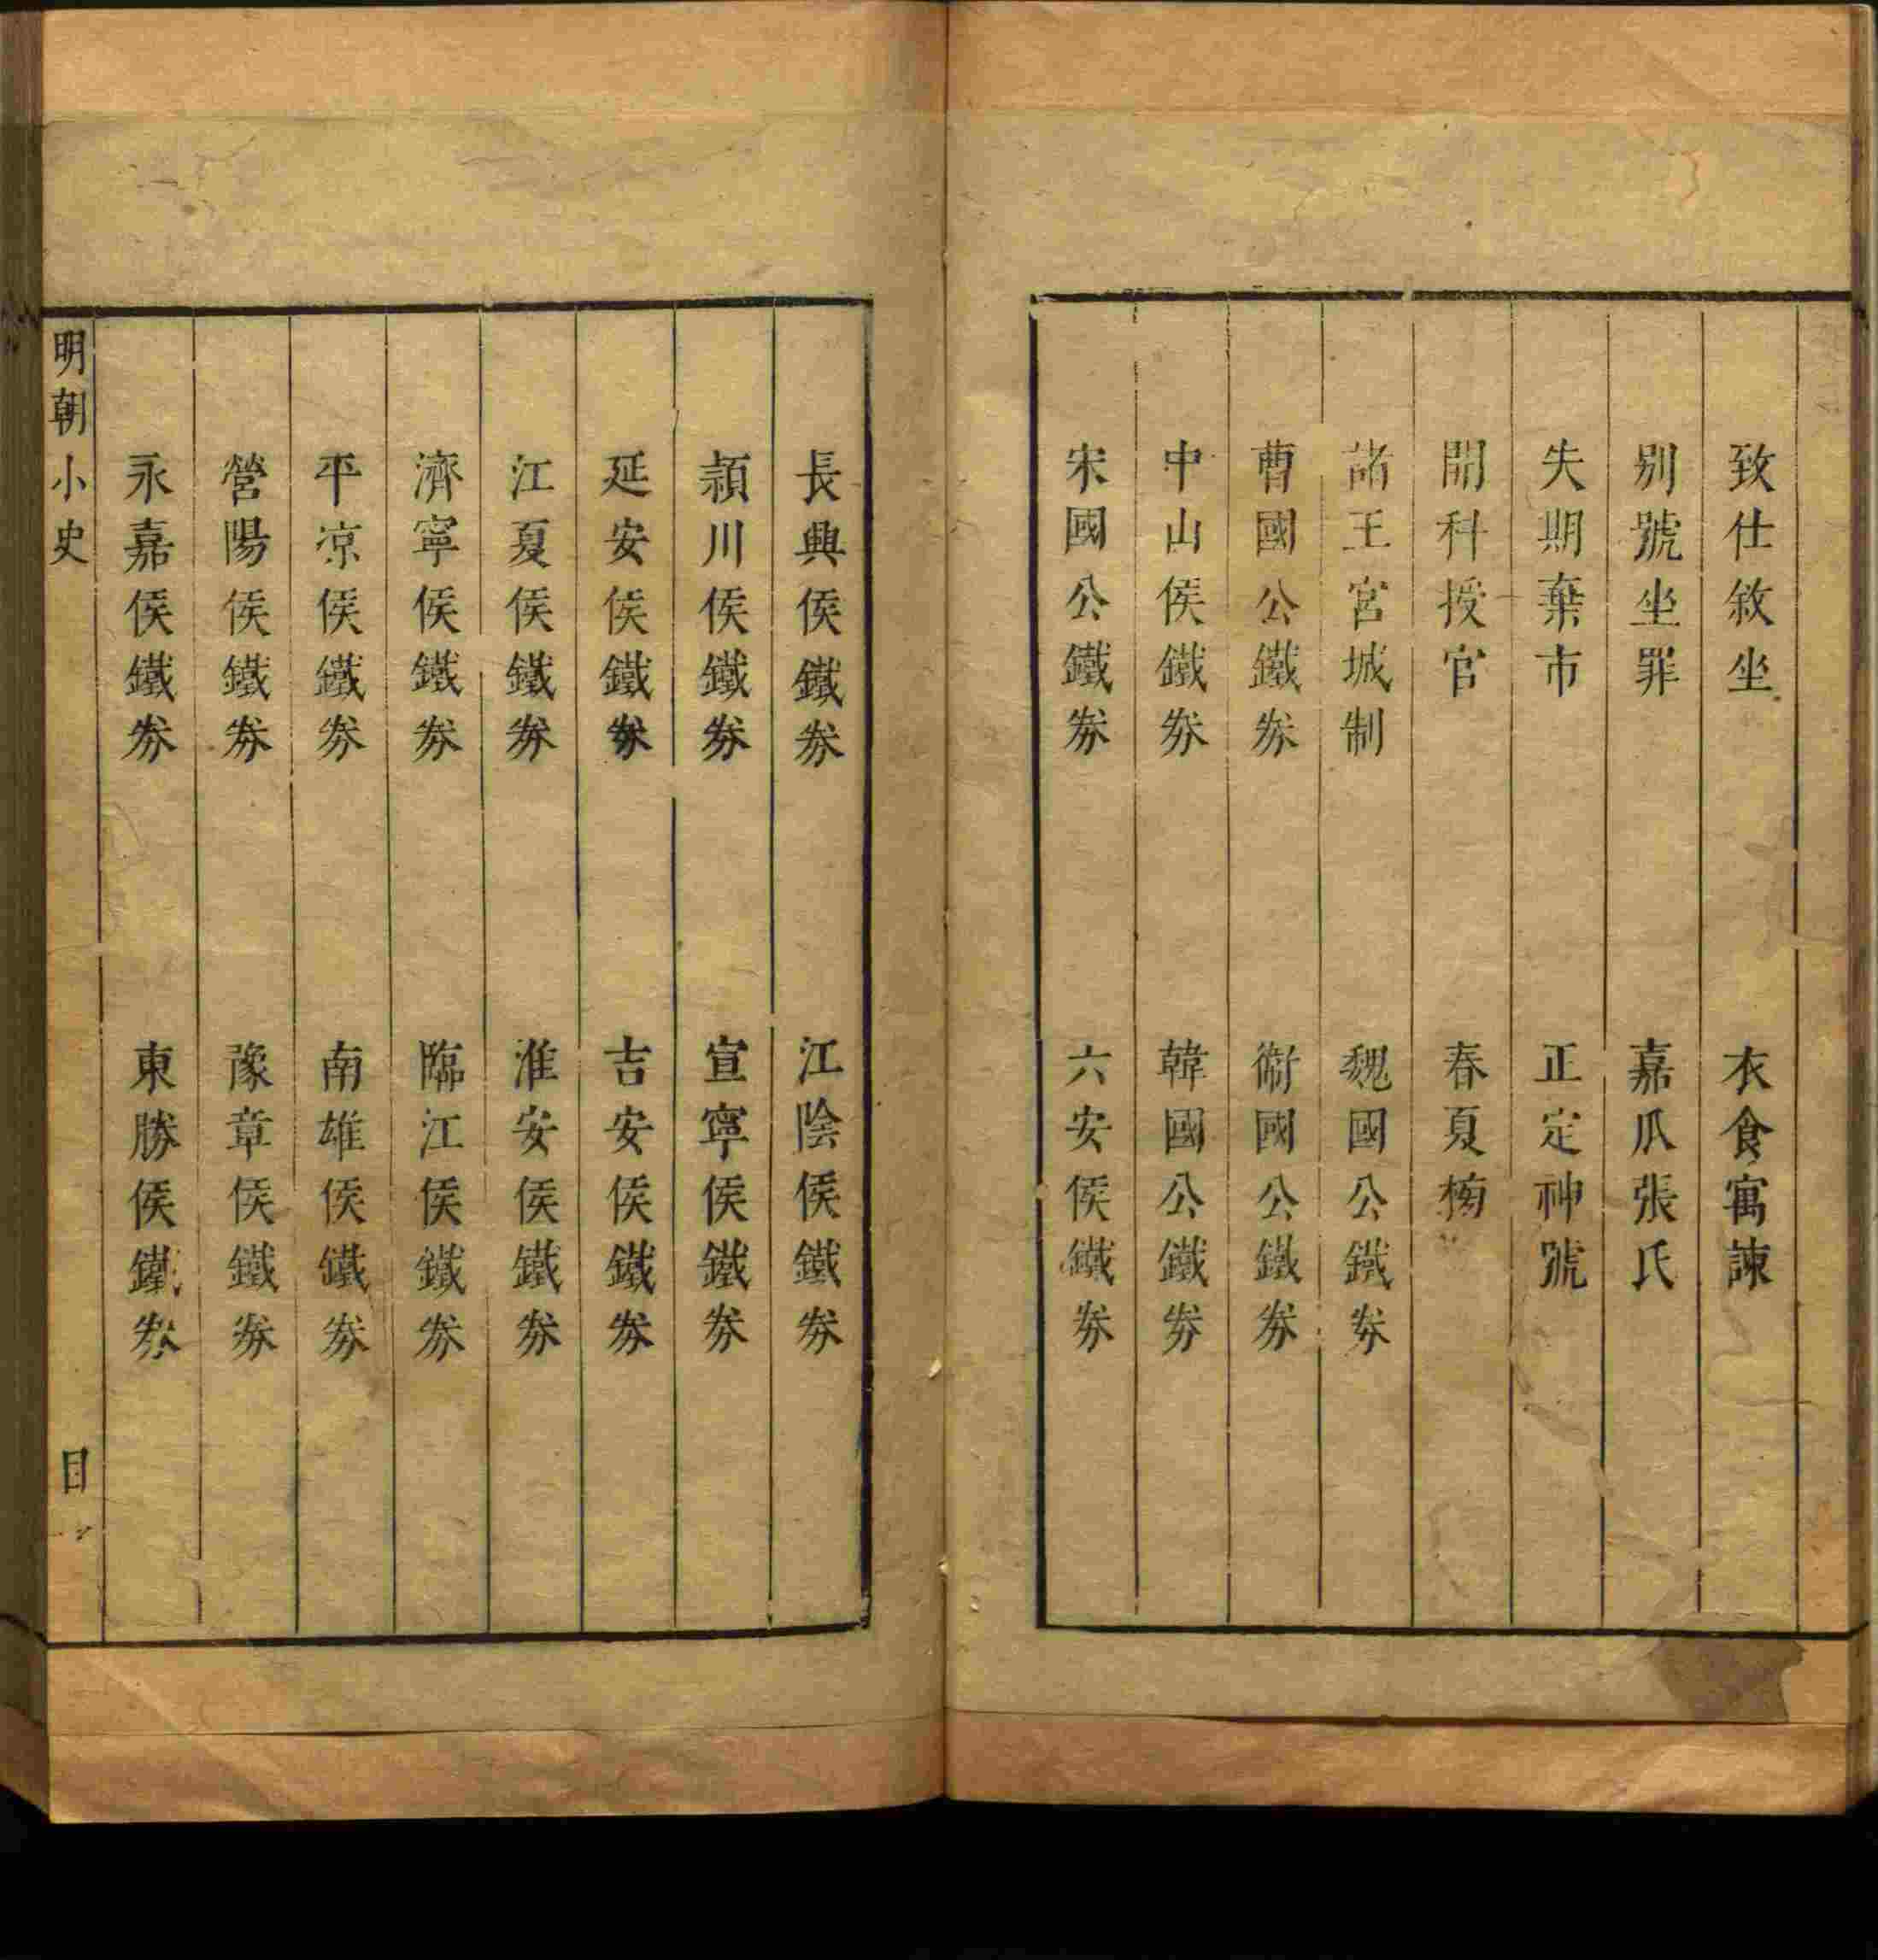 致仕敘坐　衣食寓諫
别號坐罪　嘉爪張氏
失期棄市　正定神號
開科授官　春夏㮣
諸王宮城制　魏國公鐵券
曹國公鐵券　衞國公鐵券
中山侯鐵券　韓國公鐵券
宋國公鐵券　六安侯鐵券
長興侯鐵券　江陰侯鐵券
潁川侯鐵券　宣寧侯鐵券
延安侯鐵券　吉安侯鐵券
江夏侯鐵券　淮安侯鐵券
濟寧侯鐵券　臨江侯鐵券
平凉侯鐵券　南雄侯鐵券
營陽侯鐵券　豫章侯鐵券
永嘉侯鐵券　東勝侯鐵券
明朝小史　目